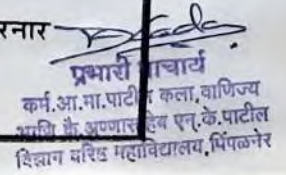 रनार
प्रभारी प्राचार्य
कर्म.आ.मा.पाटील कला, वाणिज्य
आणि कै.अण्णासाहेब एन.के.पाटील
विज्ञान वरिष्ठ महाविद्यालय, पिंपळनेर